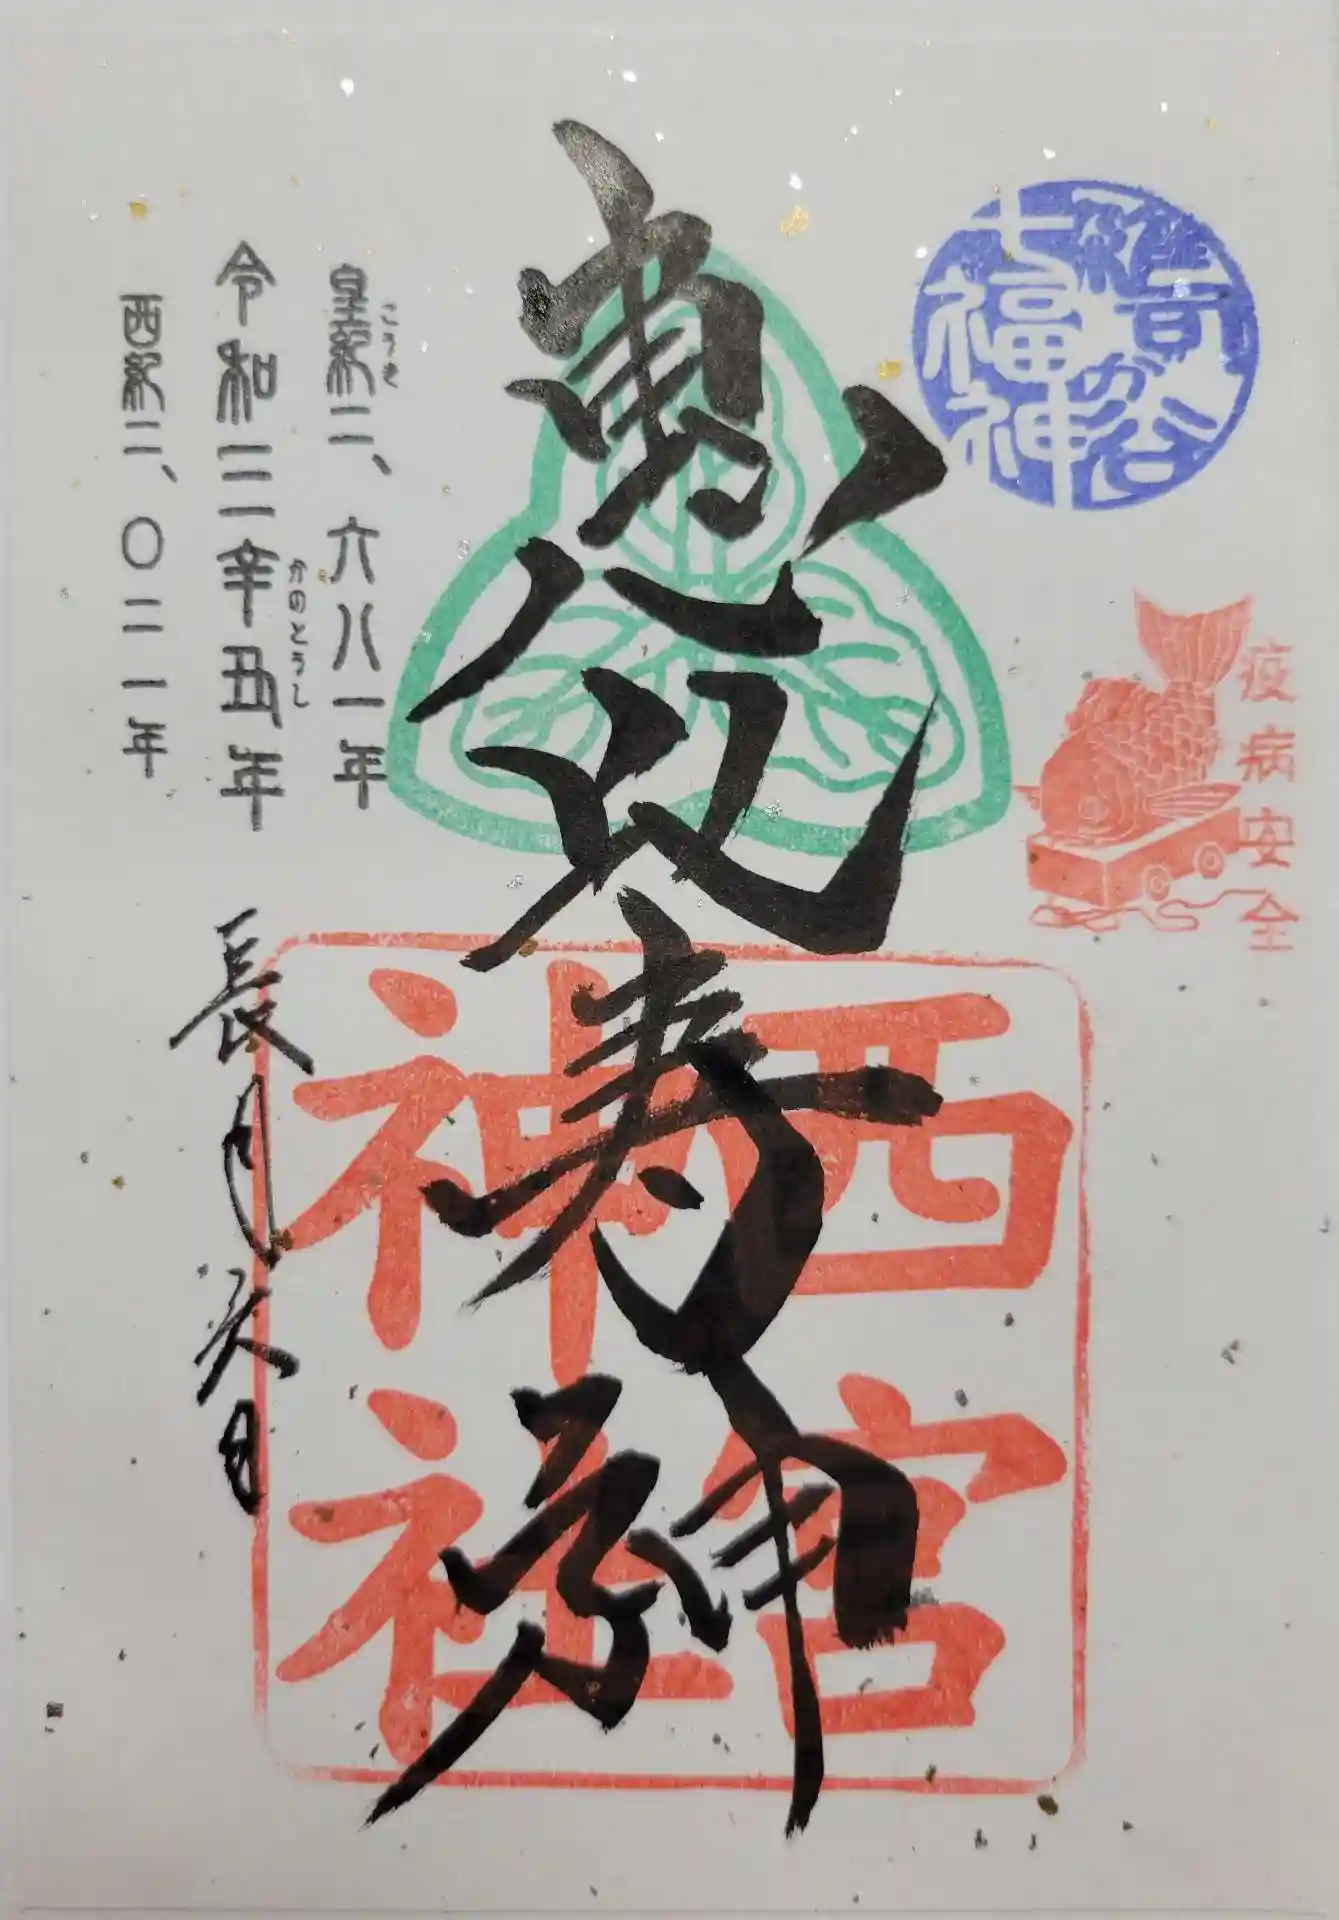 雑司が谷
七福神
疫病安全
恵比寿神
西宮
神社
皇紀二、六八一年
こうき
令和三辛丑年
かのとうし
西紀二、〇二一年
長月
日